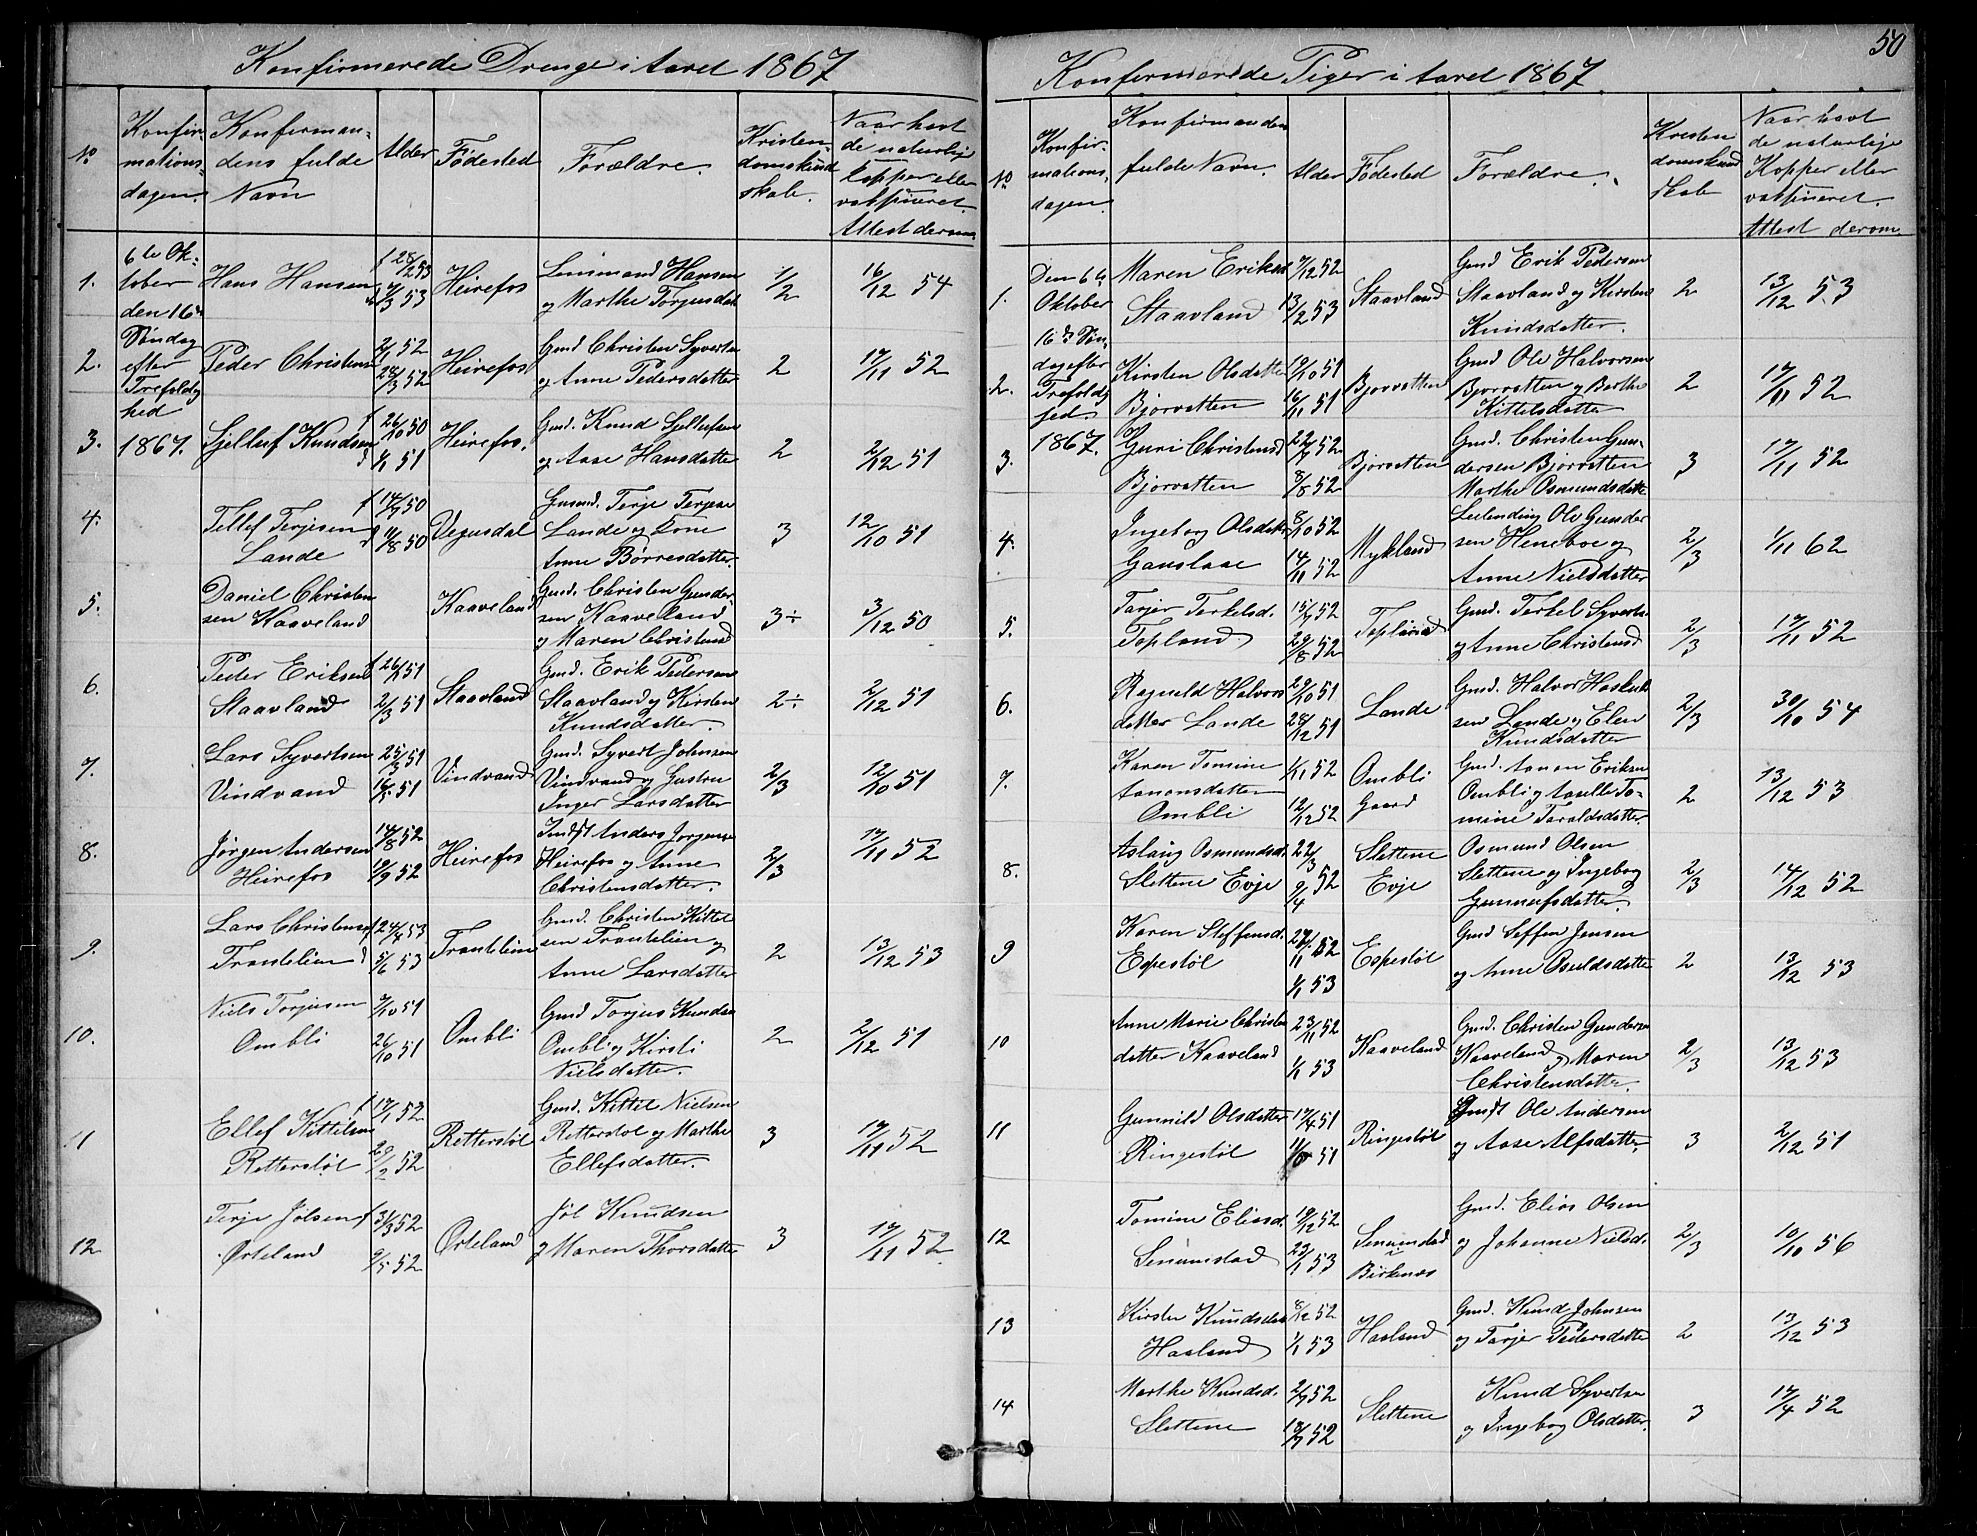 Konfirmerede Drenge i Aaret 1867
No
Konfir-
mations-
dagen.
Konfirman-
dens fulde
Navn
Alder
Fødested
Forældre.
Kristen-
domskund
skab.
Naar havt
de naturlige
Kopper eller
vakcineret.
Attest derom
6te Ok-
tober
den 16de
Søndag
efter
Trefoldig
hed
1867.
1. Hans Hansen f 28/2 53 d 4/3 53 Heirefos
Hansen
og Marthe Torjusdat
1/2 16/12 54
2. Peder Christensen 2/1 52 28/3 52 Heirefos
Gmd Christen Syverts
og Anne Pedersdatter
2 17/11 52
3. Sjelluf Knudsen f 26/10 50 d 1/1 51 Heirefos.
Gmd. Knud Sjellufsen
og Aase Hansdatter
2 2/12 51
4. Tellef Terjesen
Lande
f 14/7 50 d 11/8 50 Vegusdal
Terje Terjese
Lande og Kone
Anne Børresdatter.
3 12/10 51
5. Daniel Christen
sen Kaaveland
Kaaveland
Gmd. Christen Gunder-
sen Kaaveland
og Maren Christensd
3÷ 3/12 50
6. Peder Eriksen
Staavland
f 26/1 51 2/3 51 Staavland
Gmd. Erik Pedersen
Staavland og Kirsten
Knudsdatter.
2÷ 2/12 51
7. Lars Syvertsen
Vindvand
25/3 51 16/5 51 Vindvand
Gmd. Syvert Johnsen
Vindvand og Hustru
Inger Larsdatter
2/3 12/10 51
8. Jørgen Andersen
Heirefos
14/8 52 19/9 52 Heirefos
Indst Anders Jørgense
Heirefos og Anne
Christensdatter.
2/3 17/11 52
9. Lars Christensen
Trontelien
f 24/4 53 d 5/6 53 Trontelien
Gmd. Christen Kittel
sen Trontelien og
Anne Larsdatter
2 13/12 53
10. Niels Torjusen
Ombli
7/10 51 26/10 51 Ombli
Gmd Torjus Knudse
Ombli og Kirsti
Nielsdatter.
2 2/12 51
11 Ellef Kittilsen
Retterstøl
f 17/1 52 29/2 52 Retterstøl
Gmd. Kittil Nielsen
Retterstøl og Marthe
Ellefsdatter.
3 17/11 52
12. Terje Jølsen
Ørteland
f 31/3 52 9/5 52 Ørteland
Jøl Knudsen
og Maren Thorsdatter
3 17/11 52
50
Konfirmerede Piger i Aaret 1867
No
Konfir-
mations-
dagen.
Konfirmanden
fulde Navn.
Alder
Fødested
Forældre.
Kristen
domskund
skab
Naar havt
de naturlige
Kopper eller
vakcineret.
Attest derom.
Den 6te
Oktober
16de Søn-
dag efter
Trefoldig
hed.
1867.
1. Maren Eriksd
Staavland
7/12 52 13/2 53 Staavland
Gmd Erik Pedersen
Staavland og Kirsten
Knudsdatter.
2 13/12 53
2. Kirsten Olsdatter
Bjorvatten
19/10 51 16/11 51 Bjorvatten
Gmd Ole Halvorsen
Bjorvatten og Berthe
Kittelsdatter
2 17/11 52
3. Guri Christensd
Bjorvatten
22/7 52 8/8 52 Bjorvatten
Gmd. Christen Gun-
dersen Bjorvatten
Marthe Osmundsdatte
3 17/11 52
4. Ingeborg Olsdatter
Gauslaae
8/10 52 14/11 52 Mykland
Leilending Ole Gunder
sen Heneboe og
Anne Nielsdatter
2/3 1/11 62
5. Tarjer Terkelsd.
Topland
15/7 52 29/8 52 Topland
Gmd. Terkel Syverts.
og Anne Christensd
2/3 17/11 52
6. Ragnild Halvors
datter Lande
29/10 51 28/12 51 Lande
Gmd. Halvor Hoskuld
sen Lande og Elen
Knudsdatter
2/3 30/10 54
7. Karen Tomine
Aanonsdatter
Ombli
1/11 52 12/12 52 Ombli
Gaard
Gmd. Aanon Eriksen
Ombli og Aaselle To-
mine Taraldsdatter.
2 13/12 53
8. Aslaug Osmundsd.
Slettene Evje
22/3 9/4 52 Slettene
Evje
Osmund Olsen
Slettene og Ingeborg
Gunnufsdatter
2/3 14/12 52
9 Karen Steffensd.
Espestøl
52 1/1 53 Espestøl
Gmd Seffen Jensen
og Anne Osuldsdatte
2 13/12 53
10 Anne Marie Christen
datter Kaaveland
23/11 52 1/1 53 Kaaveland
Gmd. Christen Gunderse
Kaaveland og Maren
Christensdatter.
2/3 13/12 53
11 Gunnild Olsdatter
Ringestøl
17/4 51 51 Ringestøl
Ole Andersen
og Aase Alfsdatter
3 2/12 51
12 Tomine Eliasd.
Senumstad
19/12 52 23/1 53 Senumstad
Birkenes
Gmd. Elias Olsen
og Johanne Nielsd.
2/3 10/10 56
13 Kirsten Knudsdat
Haaland
8/12 52 1/1 53 Haaland
Gmd. Knud Johnsen
og Tarjer Pedersdatter
2 13/12 53
14 Marthe Knudsd.
Slettene
2/7 52 52 Slettene
Knud Syvertsen
og Ingeborg Olsdatter.
3 17/4 52